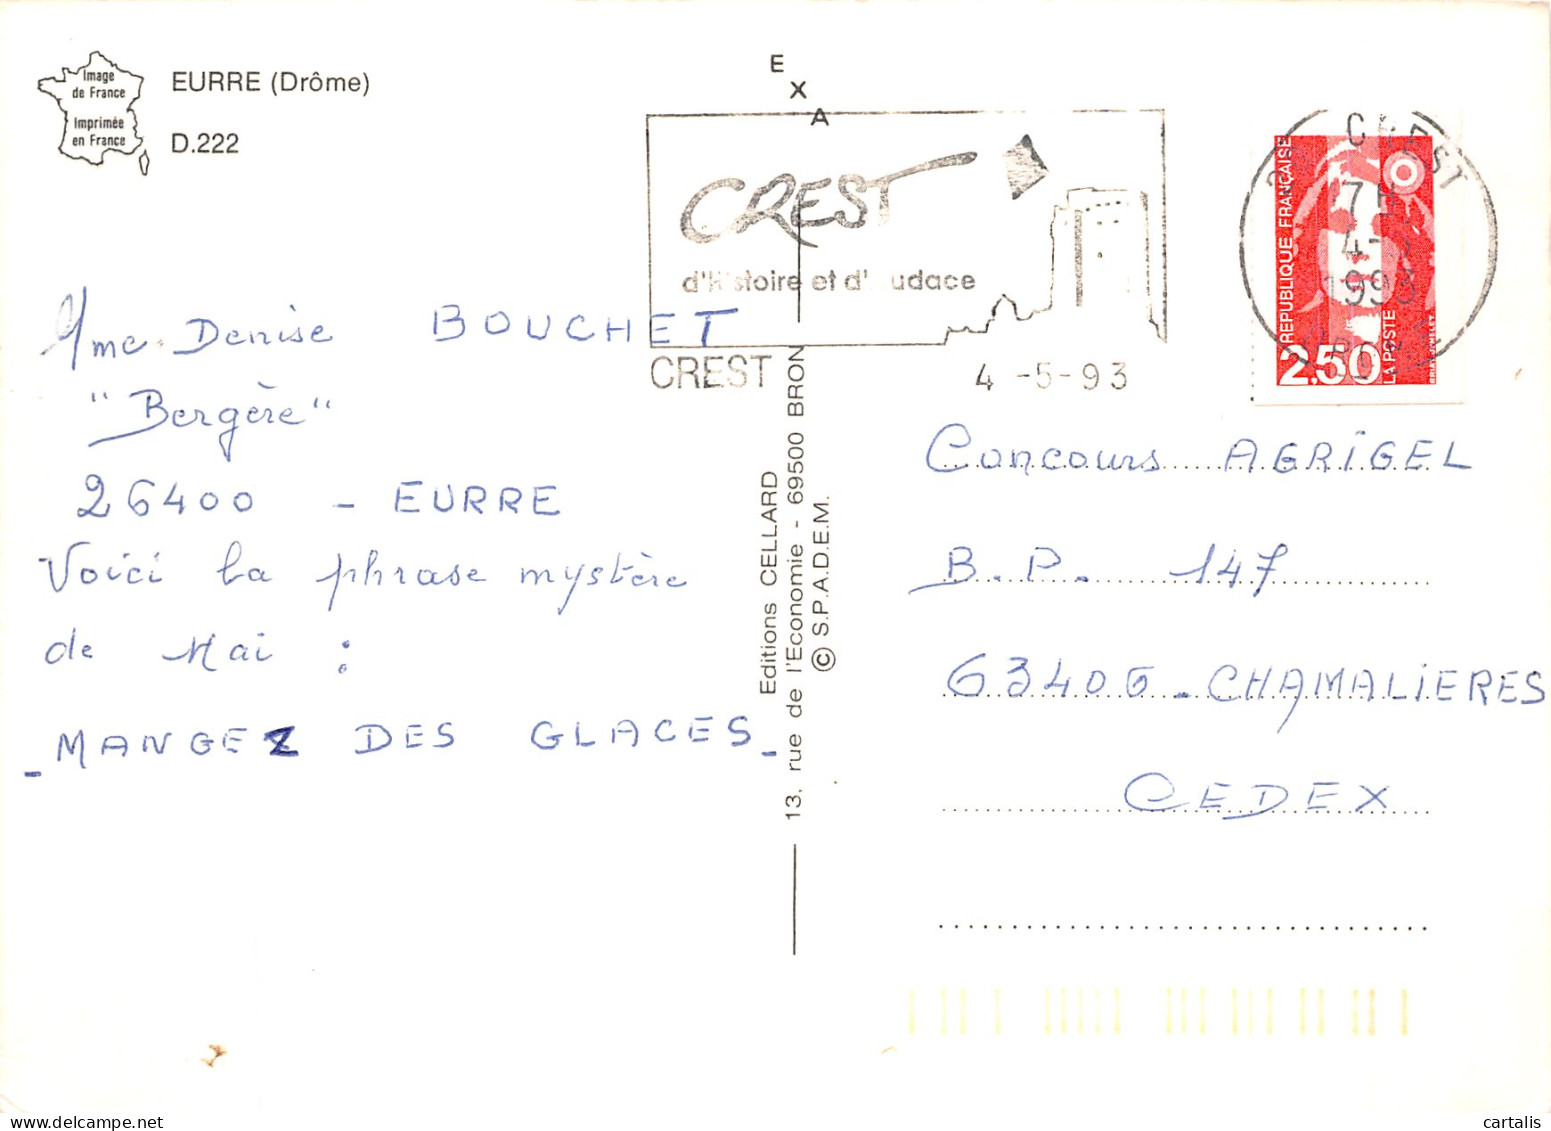 Image
de France
Imprimée
en France
EURRE (Drôme)
D.222
EXA
CREST
d'Histoire et d'Audace
CREST 4 -5-93
CREST
17H
4-5
1993
DROME
REPUBLIQUE FRANÇAISE
2.50
LA POSTE
Mme Denise BOUCHET
"Bergère"
26400 - EURRE
Voici la phrase mystère
de Mai :
- MANGEZ DES GLACES -
Editions CELLARD
13, rue de l'Economie - 69500 BRON
© S.P.A.D.E.M.
Concours AGRIGEL
B.P. 147
63406 - CHAMALIERES
CEDEX
cartalis